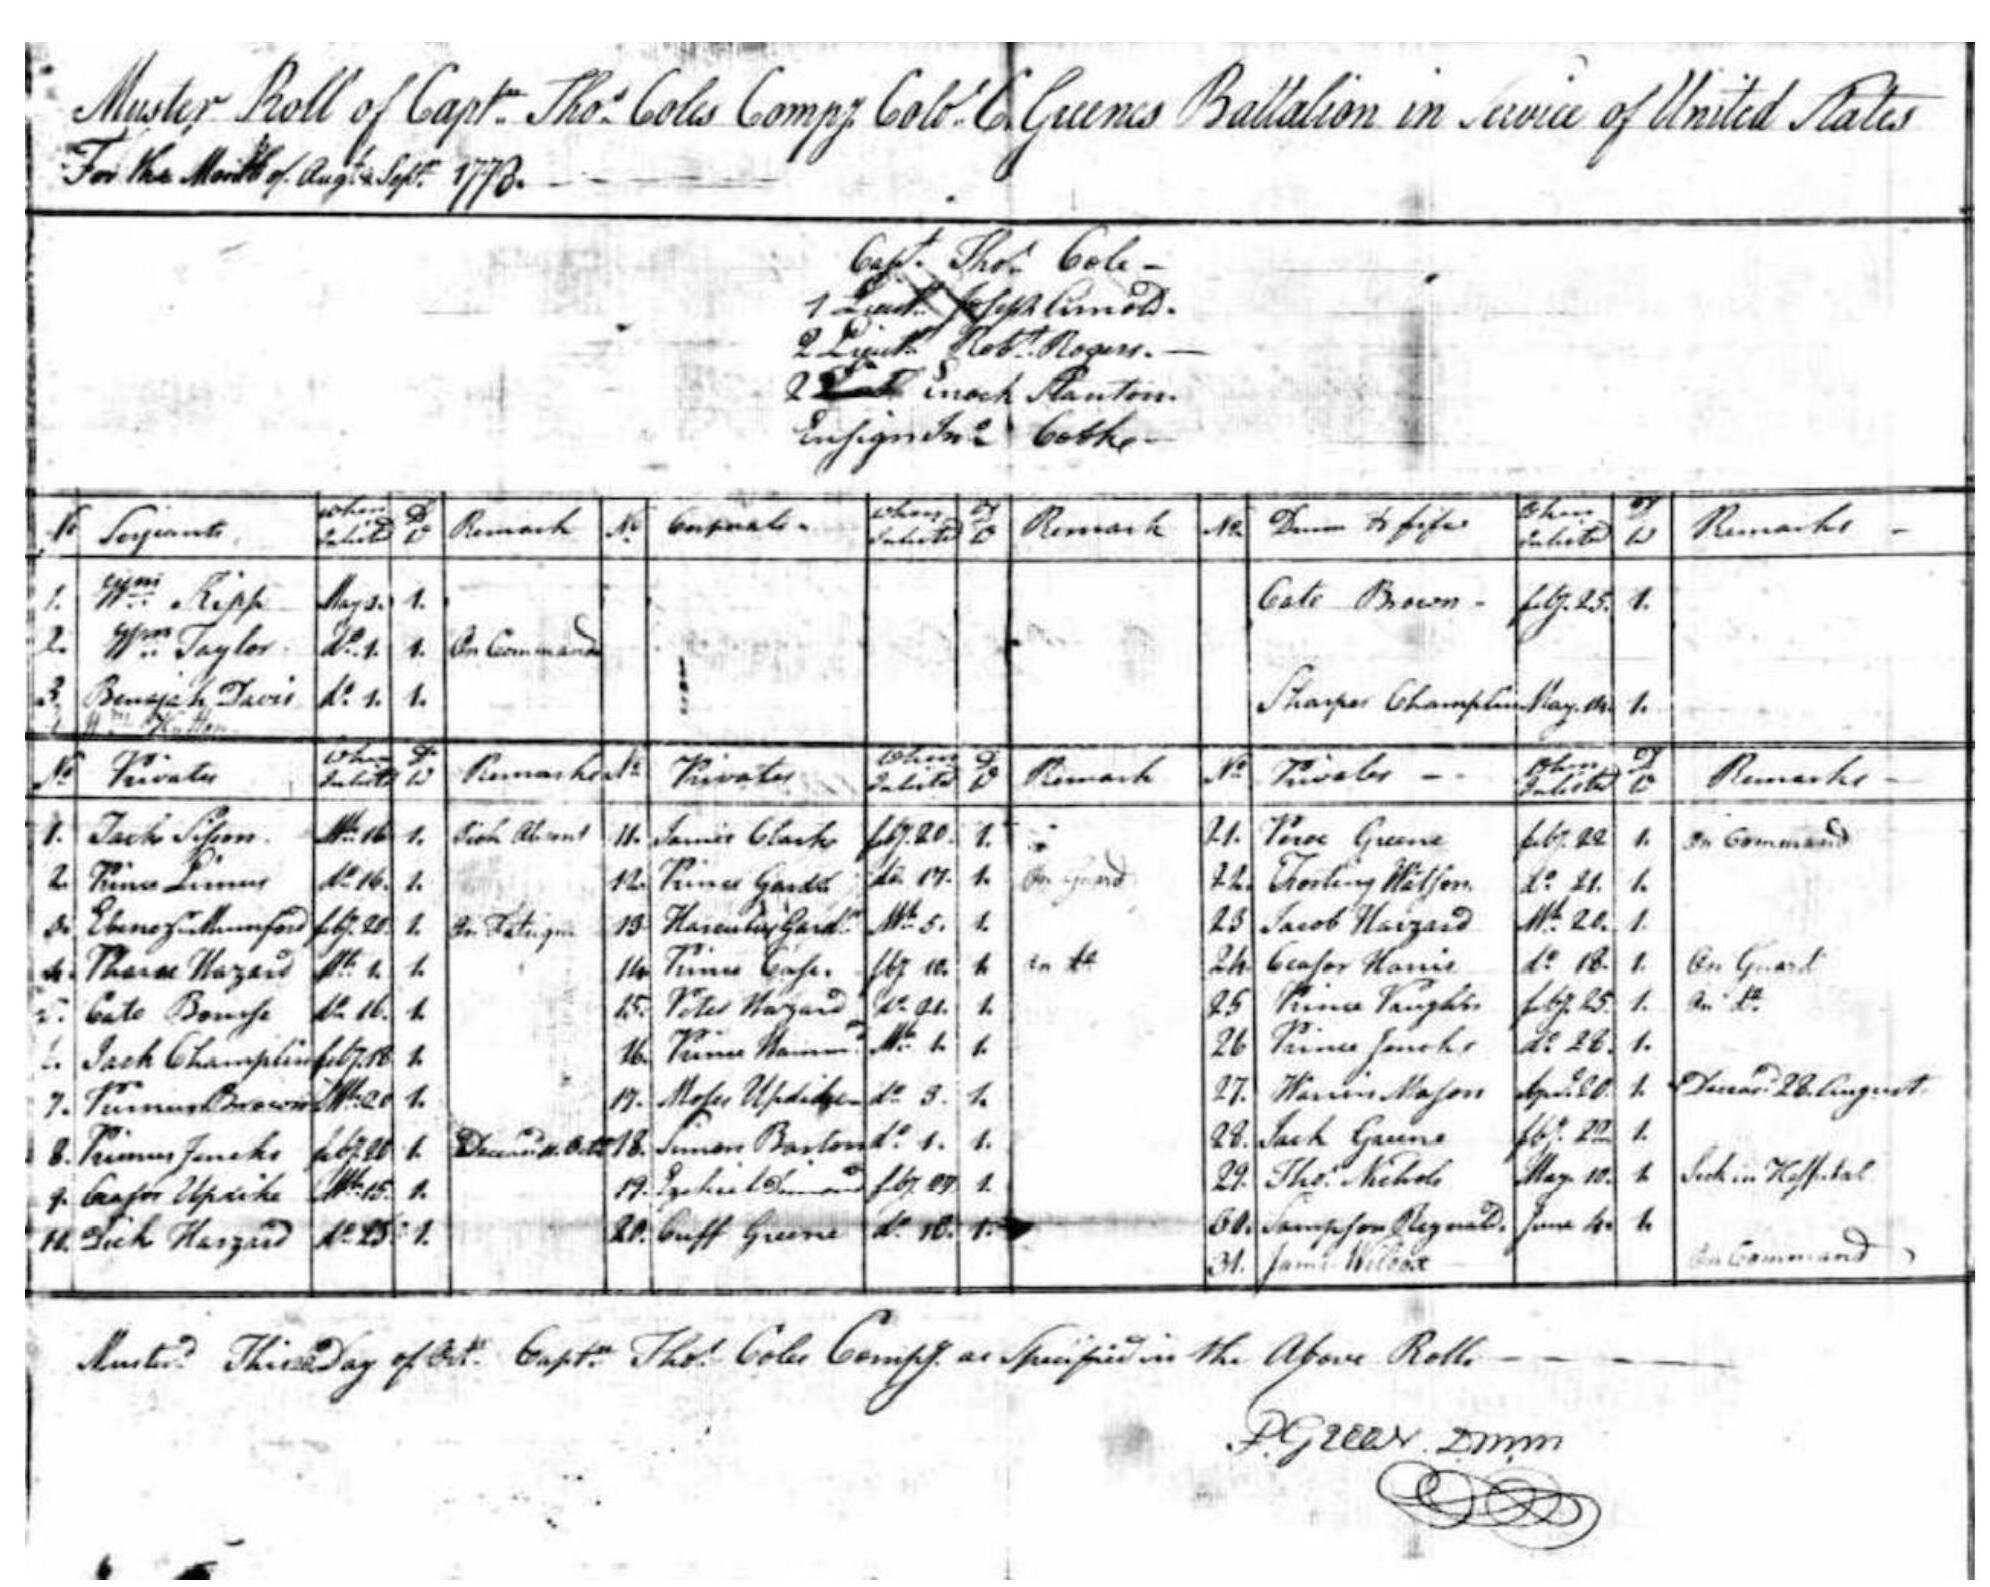 Muster Roll of Capt.n Tho.s Coles Compy. Colo.l C. Greenes Battalion in Service of United States
For the Month of Aug.t & Sept.r 1778.
Capt. Tho.s Cole
1 Lieut. Joseph Arnold.
2 Lieut. Rob.t Rogers.
2 Enoch Stanton.
Ensign Jn.o Cooke
No Serjeants When Inlisted D W Remark No. Corporals When Inlisted D W Remark No. Drum & fife When Inlisted D W Remarks
1. Wm. Tripp May 1. 1. Cato Brown feby. 25. 1.
2. Wm. Taylor do. 1. 1. On Command
3. Benajah Davis do. 1. 1. Sharper Champlin May. 1.
Wm. Hutton
No. Privates When Inlisted D W Remarks No. Privates When Inlisted D W Remark No. Privates When Inlisted D W Remarks
1. Jack Sisson. Mh. 16 1. Sick Absent 11. James Clark feby. 20. 1. 21. Pero Greene feby. 22 1. On Command
2. Prince Limus do. 16. 1. 12. Prince Gardr do. 17. 1. On Guard 22. Watson. do. 21. 1.
3. Ebenezr Mumford feby. 20. 1. On Fatigue 13. Gardr. Mh. 5. 1. 23 Jacob Hazzard Mh. 20. 1.
4. Pharoe Hazard Mh. 1. 1. 14. Prince feby 10. 1. on do 24. Ceasor Harris do. 18. 1. On Guard
5. Cato Bourse do. 16. 1. 15. Peter Hazard do. 21. 1. 25 Prince Vaughn feby. 25. 1. On do.
6. Jack Champlin feby. 18 1. 16. Prince Mh. 1. 1. 26 Prince Jencks do. 28. 1.
7. Primus Brown Mh. 20 1. 17. Moses Updike do. 3. 1. 27. Mason Apr. 20. 1. Deceasd. 28. August.
8. Primus Jencks feby. 20 1. 18. Simon Barton do. 1. 1. 28. Jack Greene feby. 22 1.
9. Ceasor Updike Mh. 15. 1. 19. Ezekiel feby. 27 1. 29. Tho.s Nichols May. 10. 1. Sick in Hospital
10. Dick Hazzard do. 25. 1. 20. Cuff Greene do. 18. 1. 30. Sampson June 4. 1.
31. James Wilcox On Command
Musterd. This Day of Oct.r Capt.n Tho.s Coles Compy. as Specified in the Above Roll.